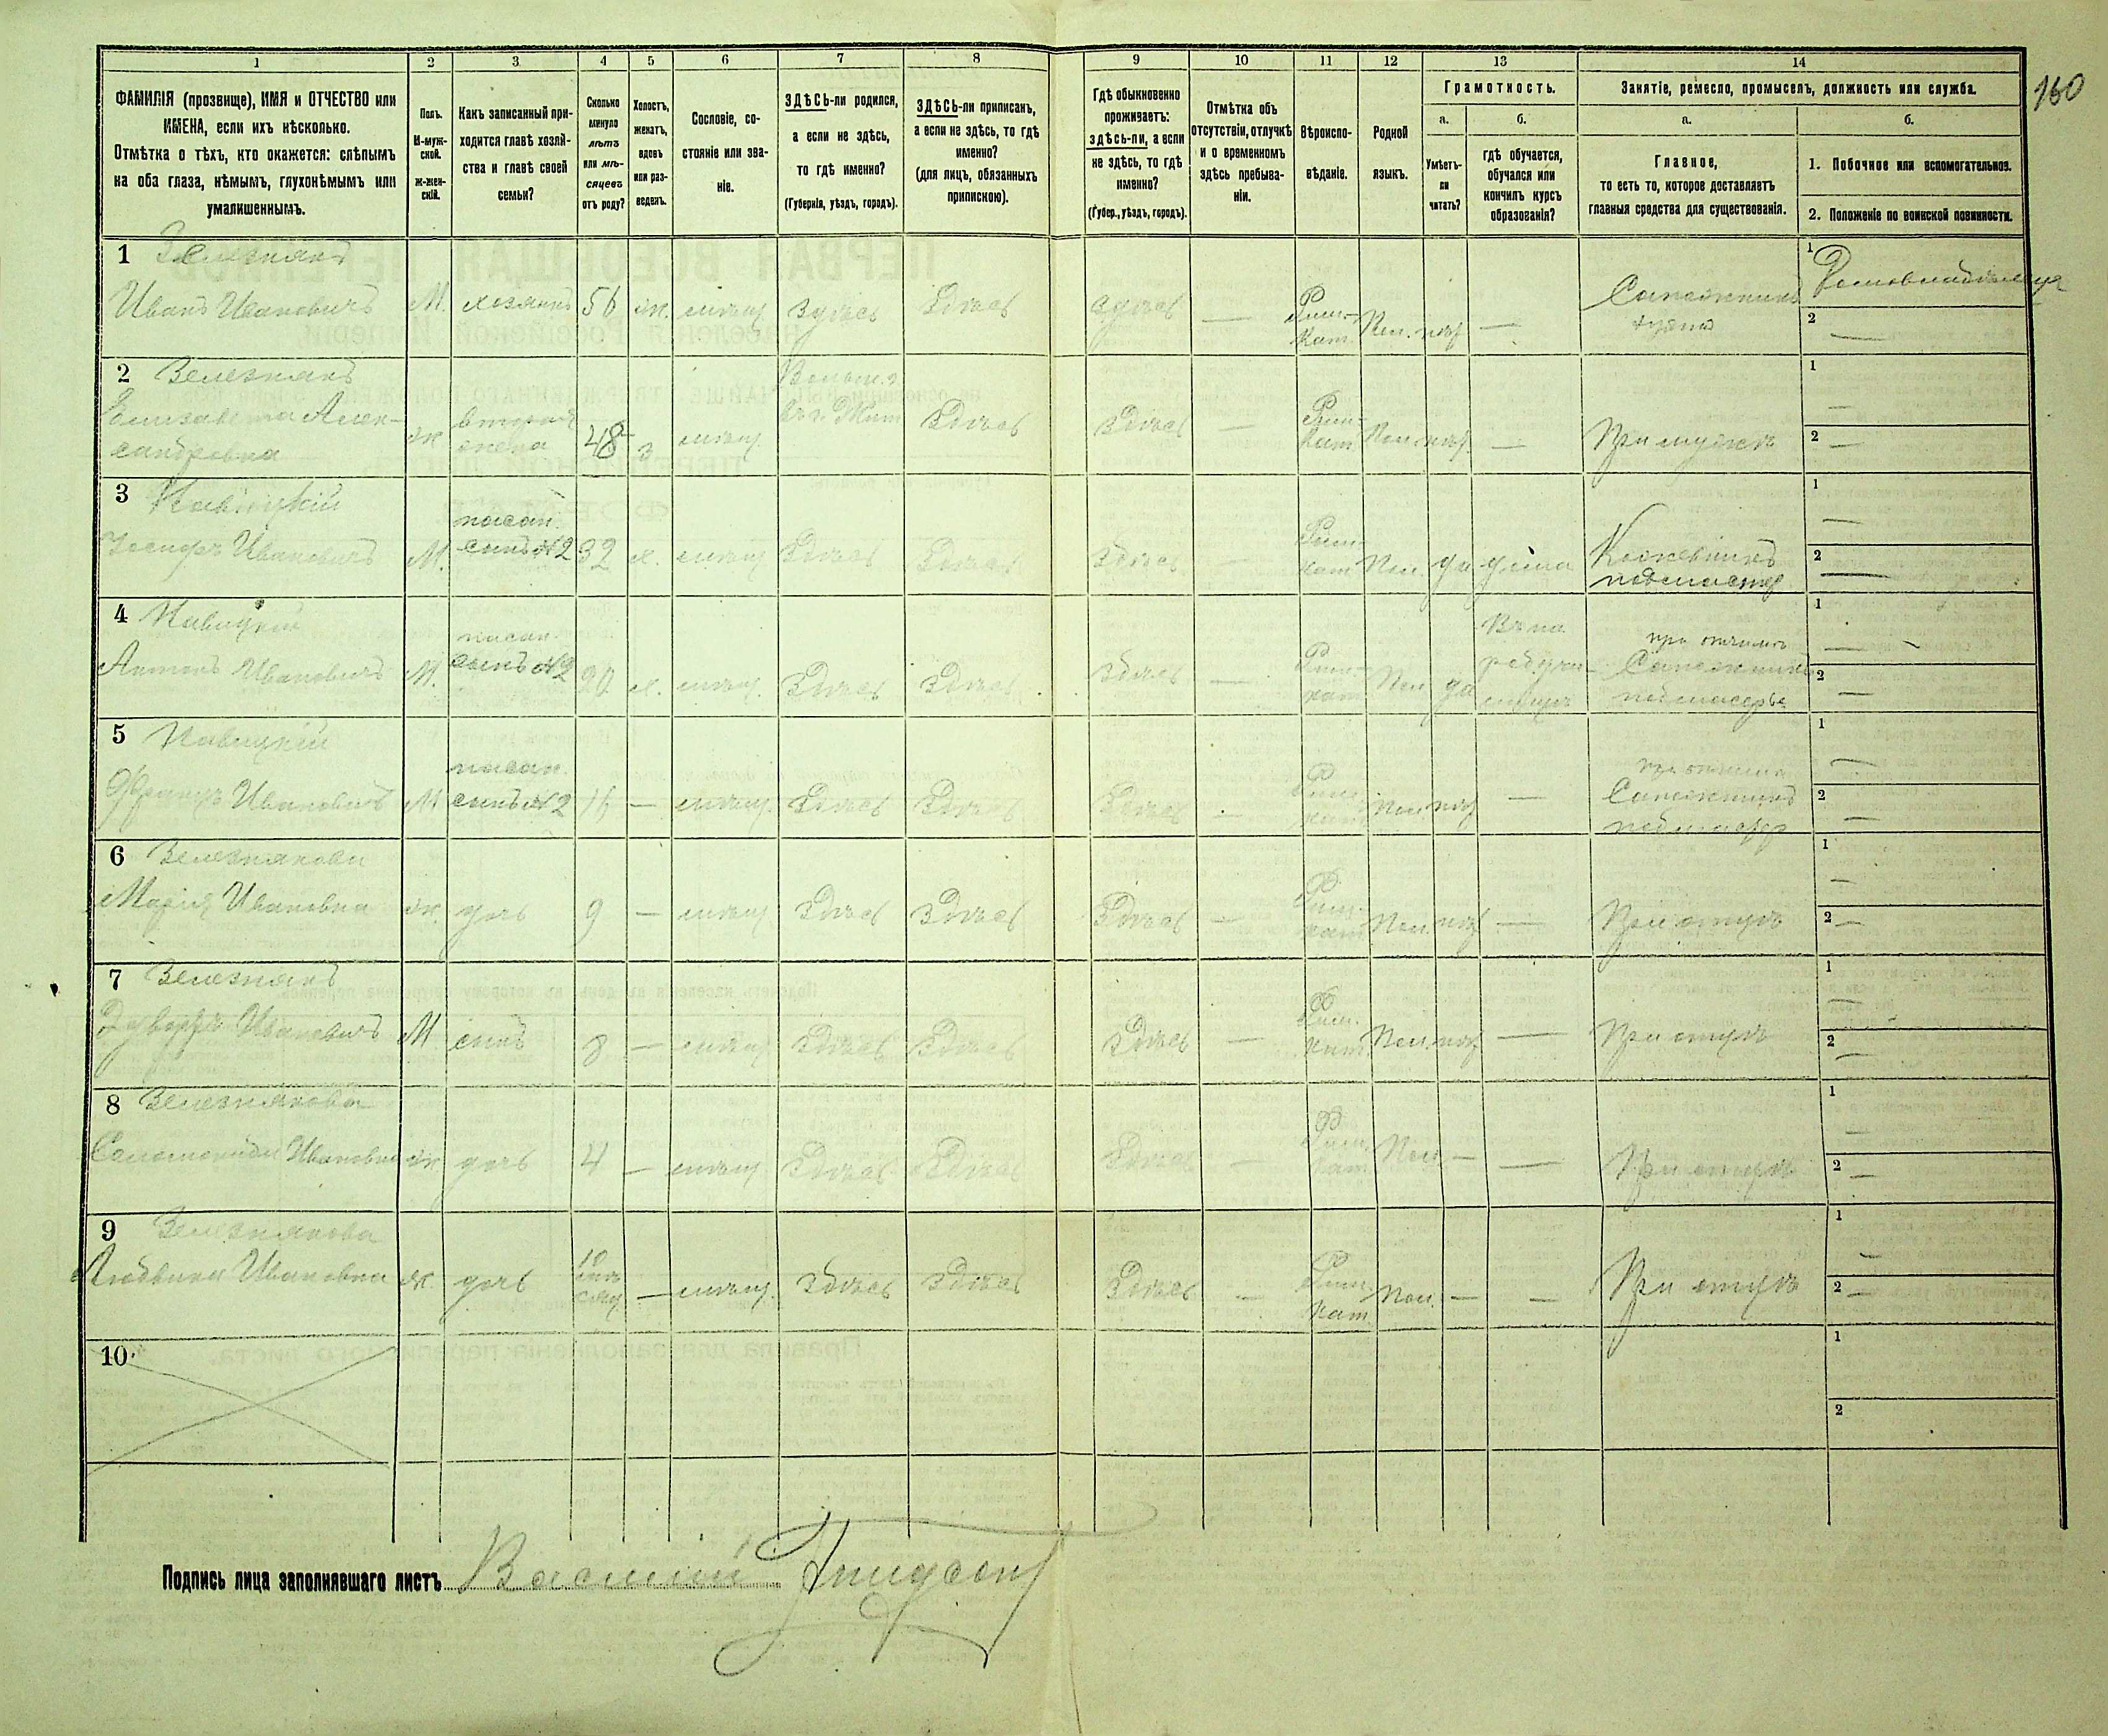 160
1 2 3 4 5 6 7 8 9 10 11 12 13 14
ФАМИЛІЯ (прозвище), ИМЯ и ОТЧЕСТВО или
ИМЕНА, если ихъ нѣсколько.
Отмѣтка о тѣхъ, кто окажется: слѣпымъ
на оба глаза, нѣмымъ, глухонѣмымъ или
умалишеннымъ.
Полъ.
М-муж-
ской.
Ж-жен-
скій.
Какъ записанный при-
ходится главѣ хозяй-
ства и главѣ своей
семьи?
Сколько
минуло
лѣтъ
или мѣ-
сяцевъ
отъ роду?
Холостъ,
женатъ,
вдовъ
или раз-
веденъ.
Сословіе, со-
стояніе или зва-
ніе.
ЗДѢСЬ-ли родился,
а если не здѣсь,
то гдѣ именно?
(Губернія, уѣздъ, городъ).
ЗДѢСЬ-ли приписанъ,
а если не здѣсь, то гдѣ
именно?
(для лицъ, обязанныхъ
припискою).
Гдѣ обыкновенно
проживаетъ:
здѣсь-ли, а если
не здѣсь, то гдѣ
именно?
(Губер., уѣздъ, городъ).
Отмѣтка объ
отсутствіи, отлучкѣ
и о временномъ
здѣсь пребыва-
ніи.
Вѣроиспо-
вѣданіе.
Родной
языкъ.
Грамотность.
а.
Умѣетъ-
ли
читать?
б.
гдѣ обучается,
обучался или
кончилъ курсъ
образованія?
Занятіе, ремесло, промыселъ, должность или служба.
а.
Главное,
то есть то, которое доставляетъ
главныя средства для существованія.
б.
1. Побочное или вспомогательное.
2. Положеніе по воинской повинности.
1 Зелезнякъ
Иванъ Ивановичъ М. хозяинъ 56 ж. мѣщ. Здѣсь Здѣсь Здѣсь — Рим.-Кат. Пол. нѣт — Сапожникъ
1
2 —
2 Зелезнякъ
Елизавета Алек-
сандровна ж вторая жена 48 з мѣщ. Здѣсь Здѣсь — Рим.-Кат. Пол. нѣт — При мужѣ
1 —
2 —
3 Навицкій
Іосифъ Ивановичъ М. пасын. сынъ №2 32 х. мѣщ Здѣсь Здѣсь Здѣсь — Рим.-кат Пол. да дома Кожевникъ
подмастер
1 —
2 —
4 Навицкій
Антонъ Ивановичъ М. пасын. сынъ №2 20 х. мѣщ. Здѣсь Здѣсь Здѣсь — Рим.-кат Пол да при отчимѣ
Сапожникъ
подмастерье
1 —
2 —
5 Навицкій
Францъ Ивановичъ М пасын. сынъ №2 — мѣщ. Здѣсь Здѣсь Здѣсь — Рим.-кат Пол. нѣт — при отчимѣ
Сапожникъ
подмастер
1 —
2 —
6 Зелезнякова
Марія Ивановна ж. дочь 9 — мѣщ Здѣсь Здѣсь Здѣсь — Рим.-кат Пол. нѣт — При отцѣ
1 —
2 —
7 Зелезнякъ
Эдвардъ Ивановичъ М сынъ 8 — мѣщ Здѣсь Здѣсь Здѣсь — Рим.-кат. Пол. нѣт — При отцѣ
1 —
2 —
8 Зелезнякова
Ивановна ж дочь 4 — мѣщ Здѣсь Здѣсь Здѣсь — Рим.-кат Пол. — — При отцѣ
1 —
2 —
9 Зелезнякова
Людвика Ивановна ж. дочь 10 мѣсяц — мѣщ. Здѣсь Здѣсь Здѣсь — Рим.-кат Пол. — — При отцѣ
1 —
2 —
10.
1
2
Подпись лица заполнявшаго листъ Василій